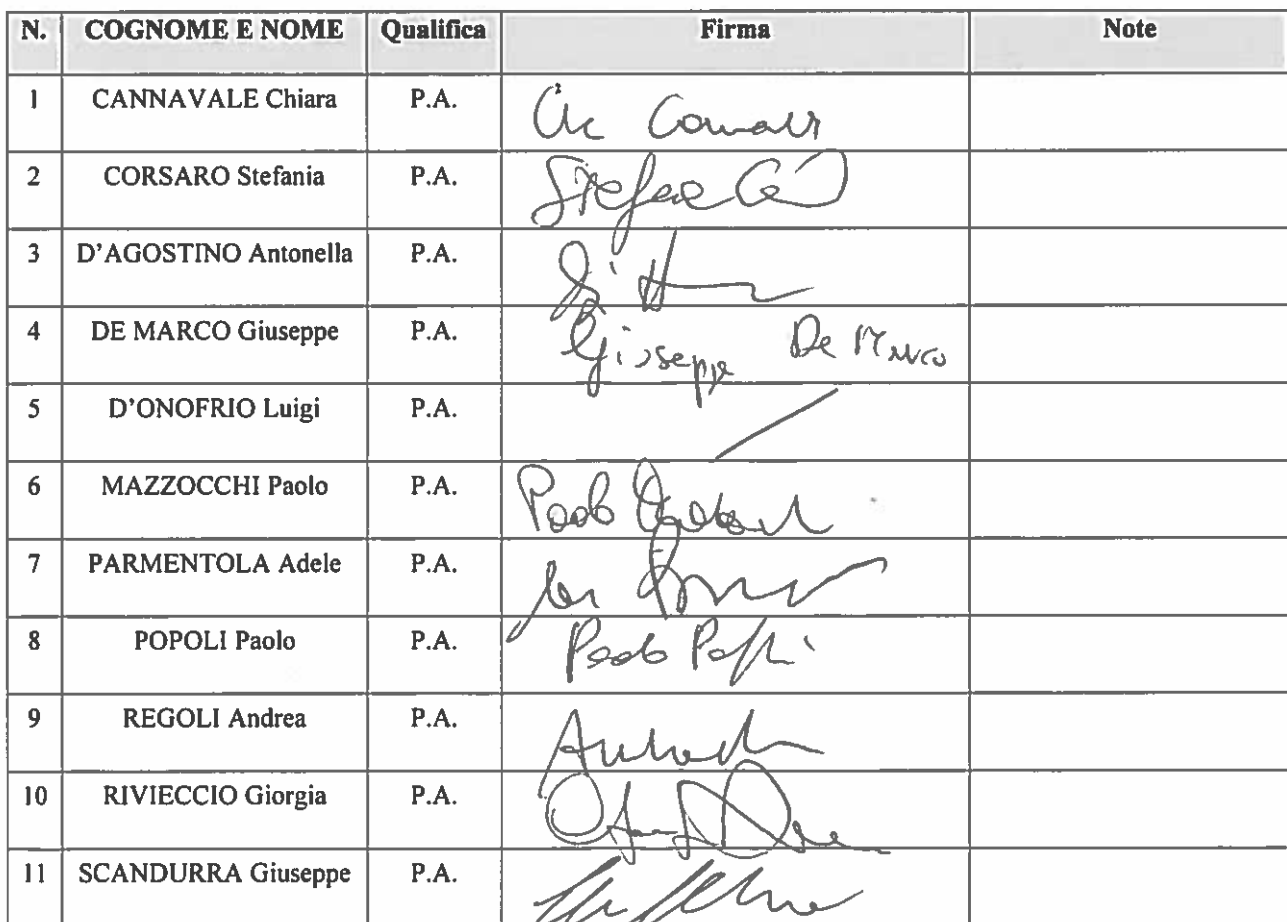 N. COGNOME E NOME Qualifica Firma Note
1 CANNAVALE Chiara P.A.
2 CORSARO Stefania P.A.
3 D'AGOSTINO Antonella P.A.
4 DE MARCO Giuseppe P.A. Giuseppe De Marco
5 D'ONOFRIO Luigi P.A.
6 MAZZOCCHI Paolo P.A. Paolo
7 PARMENTOLA Adele P.A.
8 POPOLI Paolo P.A. Paolo Popoli
9 REGOLI Andrea P.A.
10 RIVIECCIO Giorgia P.A.
11 SCANDURRA Giuseppe P.A.